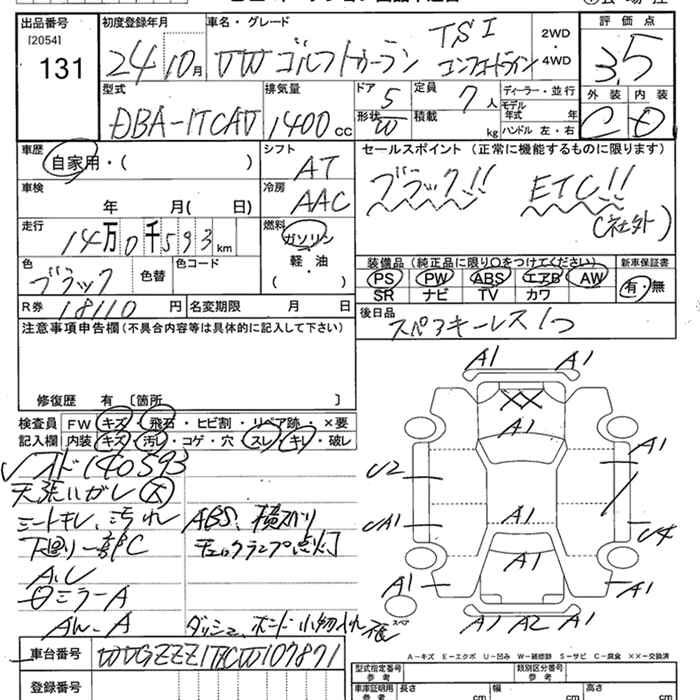 出品番号 [2054] 131
初度登録年月 24 10月
車名・グレード VW ゴルフトゥーラン TSI コンフォートライン
2WD・4WD
評価点 3.5
外装 C 内装 D
型式 DBA-1TCAV
排気量 1400 cc
ドア 5
形状 W
定員 7人
積載 kg
ディーラー・並行
モデル年式 年
ハンドル 左・右
車歴 自家用・( )
シフト AT
車検 年 月( 日)
冷房 AAC
走行 14万0千593km
燃料 ガソリン・軽・油 ( )
色 ブラック 色替 色コード
R券 18110円 名変期限 月 日
セールスポイント (正常に機能するものに限ります)
ブラック!! ETC!!
(社外)
装備品(純正品に限り〇をつけてください) 新車保証書
PS PW ABS エアB AW 有・無
SR ナビ TV カワ
後日品 スペアキーレス1つ
注意事項申告欄(不具合内容等は具体的に記入して下さい)
修復歴 有 〔箇所 〕
検査員 FW キズ・飛石・ヒビ割・リペア跡・×要
記入欄 内装 キズ・汚レ・コゲ・穴・スレ・キレ・破レ
オド140593
天張ハガレ 大
シートキレ、汚れ ABS、横スベリ
下廻り一部C チェックランプ点灯
A.U
ミラーA
AW-A
A1 A1
A1
A1
U2
UA1
A1
A1
U4
A1
A1
A1 A2 A1
スペア
車台番号 WVGZZZ1TZCW107871
A-キズ E-エクボ U-凹み W-補修跡 S-サビ C-腐食 XX-交換済
登録番号
型式指定番号 参考
類別区分番号 参考
車庫証明用 参考 長さ cm 幅 cm 高さ cm